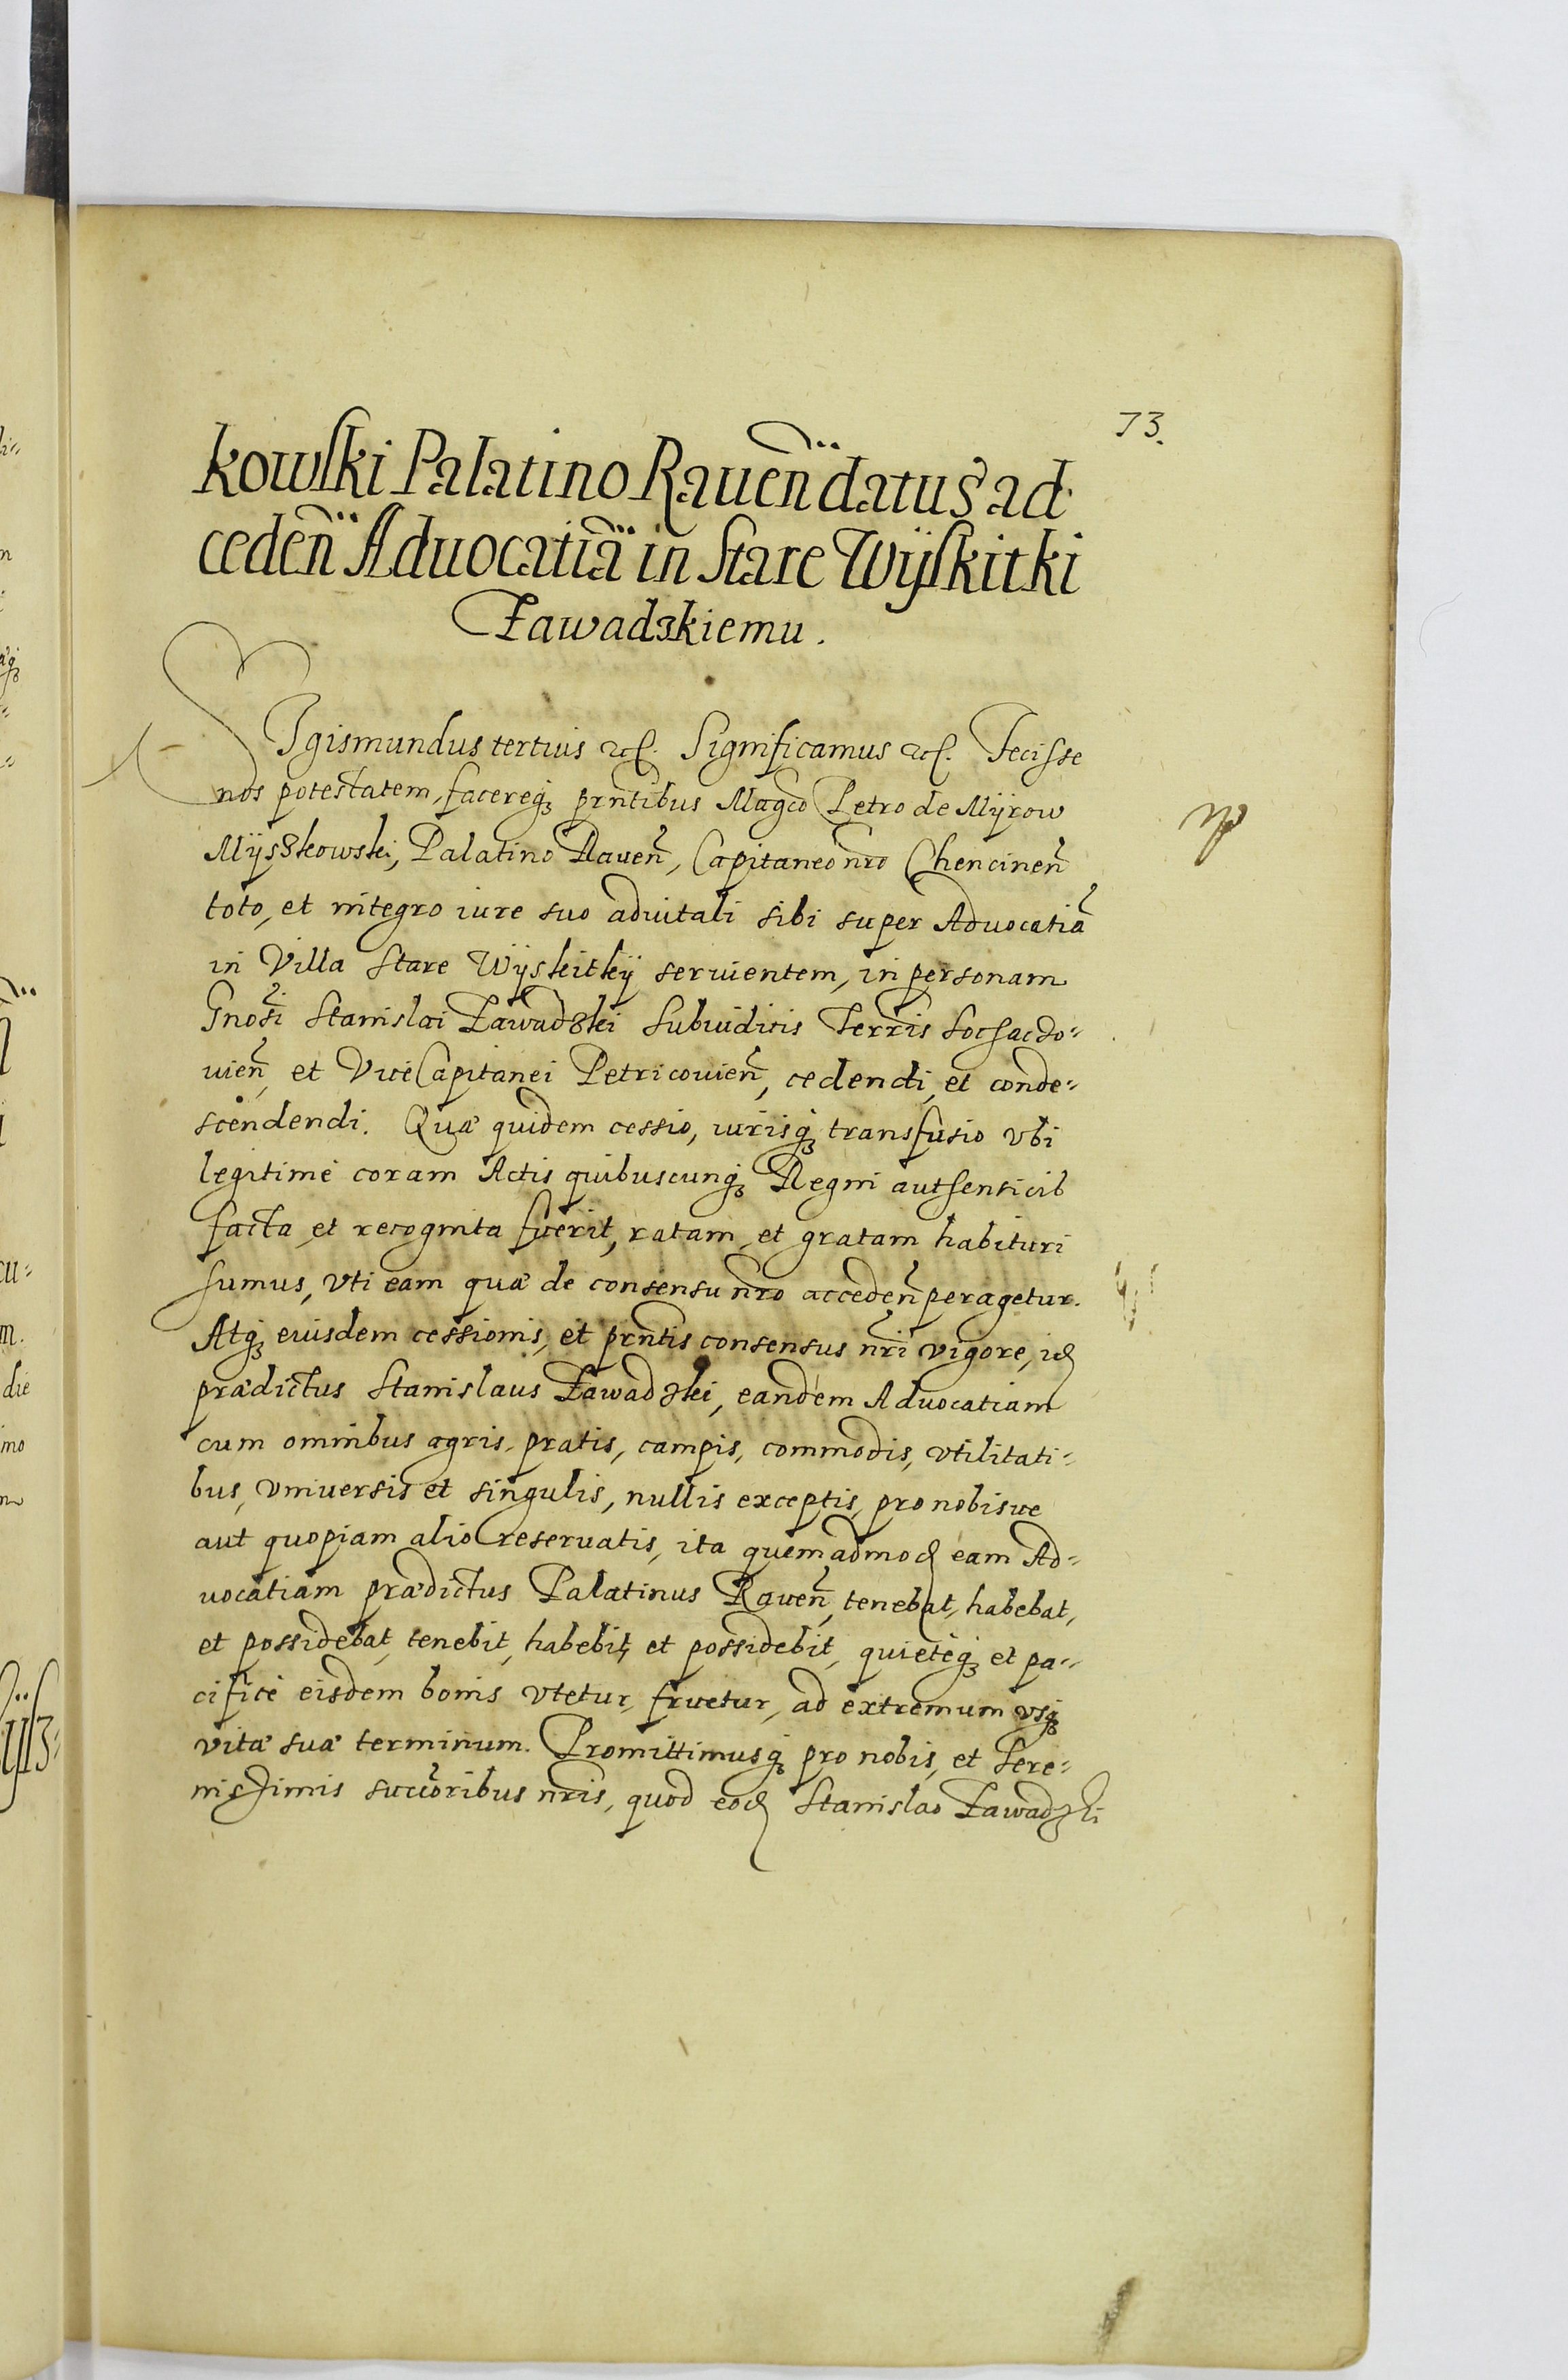 73.
kowski Palatino Rauen̄ datus ad
ceden̄ Aduocatiā in Stare Wÿskitki
Zawadzkiemu.
SIgismundus tertius etc. Significamus etc. Fecisse
nos potestatem, facereq; prn̄tibus Magco Petro de Mÿrow
Mÿszkowski, Palatino Rauen̄, Capitaneo nr̄o Chencinen̄
toto, et integro iure suo aduitali sibi super Aduocatiā
in Villa Stare Wÿskitkÿ seruientem, in personam
Gnosi Stanislai Zawadzki Subiudicis Terris Sochaczo-
uien̄, et ViceCapitanei Petricouien̄, cedendi, et conde-
scendendi. Quæ quidem cessio, iurisq; transfusio vbi
legitimè coram Actis quibuscunq; Regni authenticib
facta, et recognita fuerit, ratam, et gratam habituri
sumus, vti eam quæ de consensu nr̄o acceden̄ peragetur.
Atq; eiusdem cessionis, et prn̄tis consensus nr̄i vigore, id
prædictus Stanislaus Zawadzki, eandem Aduocatiam
cum omnibus agris, pratis, campis, commodis, vtilitati-
bus, vniuersis et singulis, nullis exceptis, pro nobisue
aut quopiam alio reseruatis, ita quemadmod eam Ad-
uocatiam prædictus Palatinus Rauen̄, tenebat, habebat,
et possidebat, tenebit, habebit, et possidebit, quietèq; et pa-
cificè eisdem bonis vtetur, fruetur, ad extremum vsq;
vitæ suæ terminum. Promittimusq; pro nobis, et Sere-
nissimis succoribus nr̄is, quod eod Stanislao Zawadzki